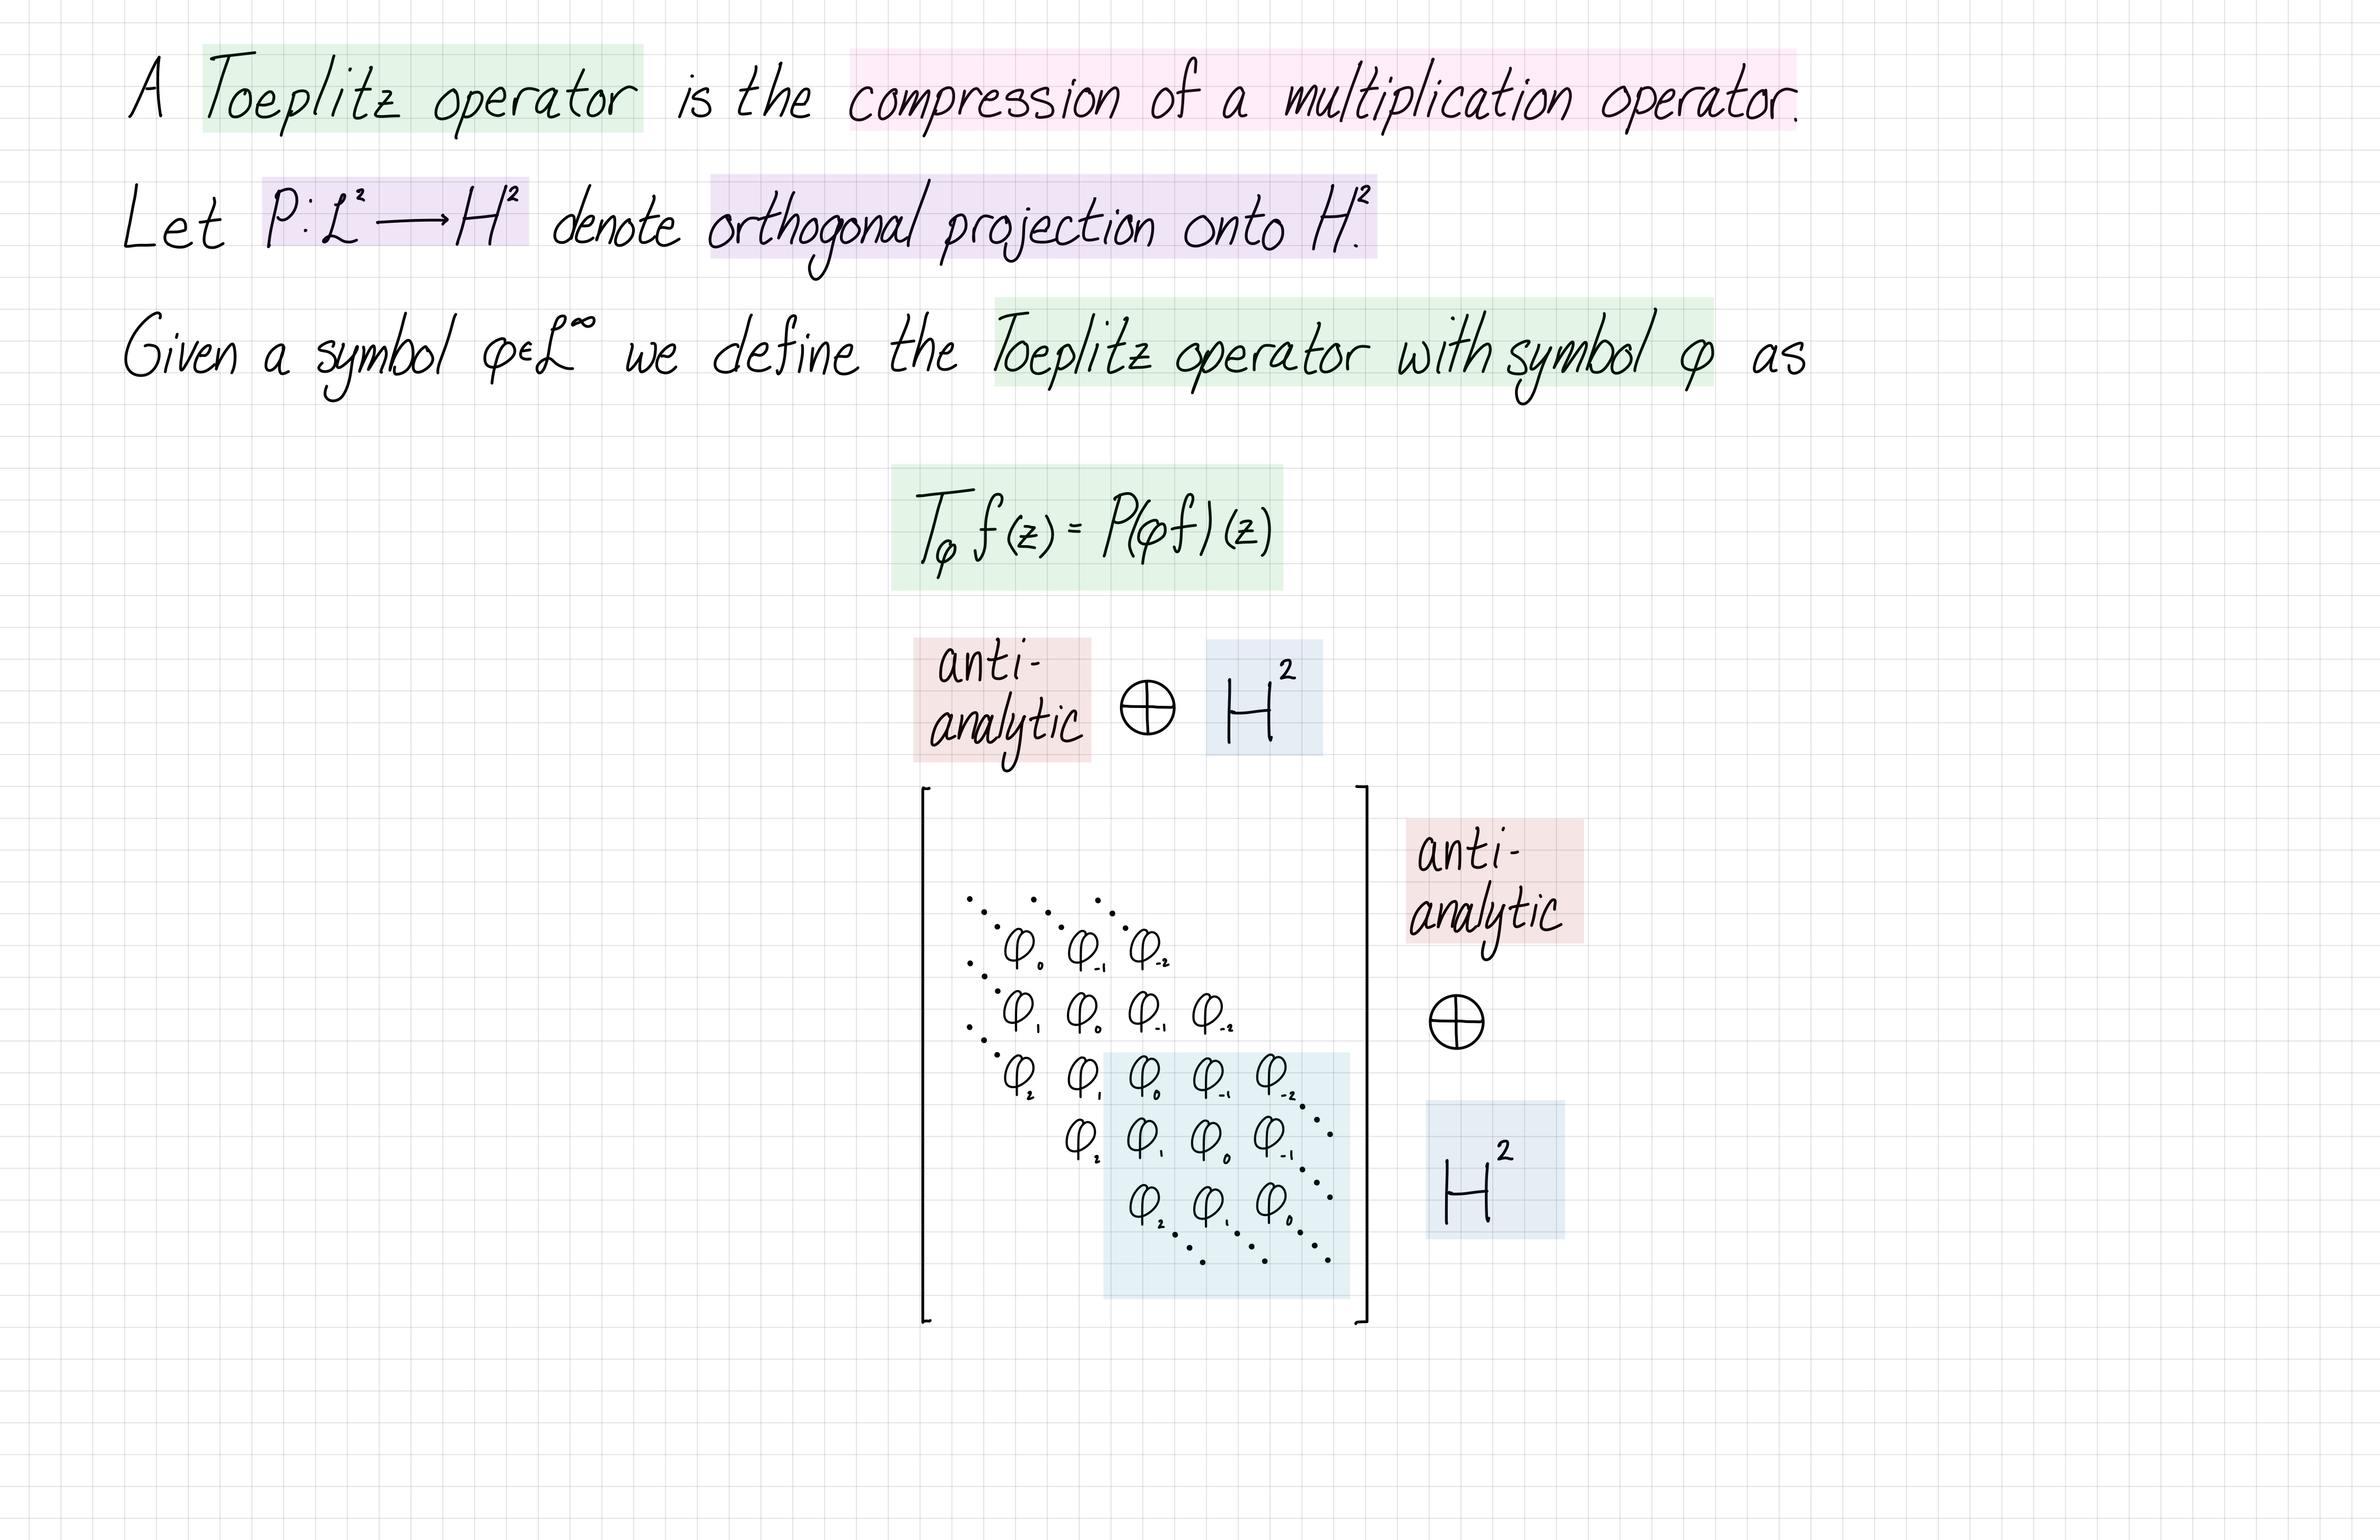 A Toeplitz operator is the compression of a multiplication operator.
Let P: L² ⟶ H² denote orthogonal projection onto H².
Given a symbol φ∈L^∞ we define the Toeplitz operator with symbol φ as
T_φ f(z) = P(φf)(z)
anti-
analytic ⊕ H²
anti-
analytic
⋱ ⋱ ⋱
⋱ φ₀ φ₋₁ φ₋₂
⋱ φ₁ φ₀ φ₋₁ φ₋₂
⊕
φ₂ φ₁ φ₀ φ₋₁ φ₋₂ ⋱
φ₂ φ₁ φ₀ φ₋₁ ⋱
H²
φ₂ φ₁ φ₀
⋱ ⋱ ⋱